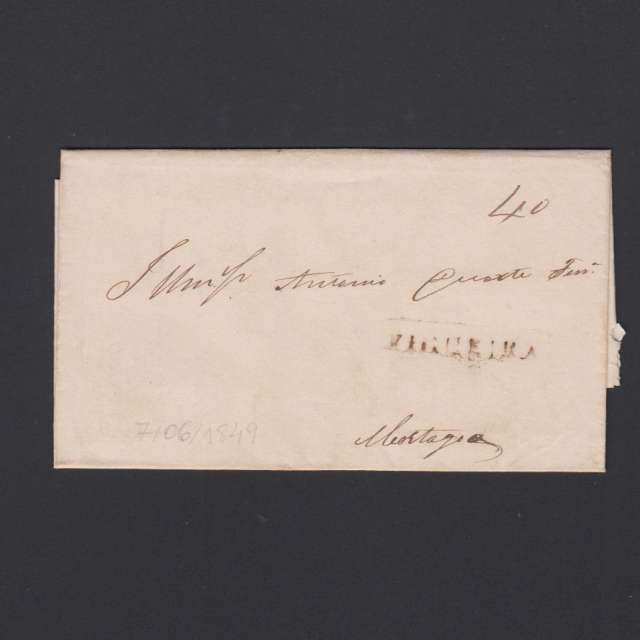 40
Illmo Sr Antonio Duarte Ferr.
FIGUEIRA
Mortagoa
7/06/1849